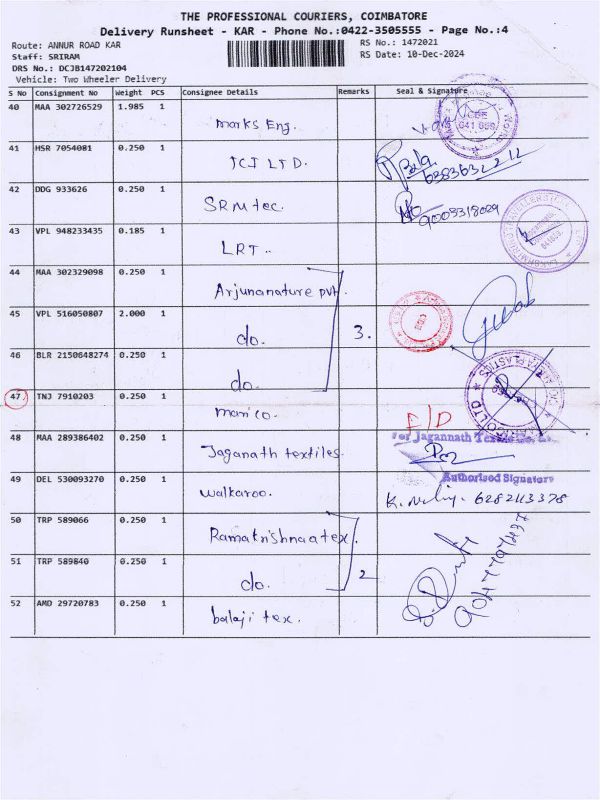 THE PROFESSIONAL COURIERS, COIMBATORE
Delivery Runsheet - KAR - Phone No.:0422-3505555 - Page No.:4
Route: ANNUR ROAD KAR
RS No.: 1472021
Staff: SRIRAM
RS Date: 10-Dec-2024
DRS No.: DCJB147202104
Vehicle: Two Wheeler Delivery
S No Consignment No Weight PCS Consignee Details Remarks Seal & Signature
40 MAA 302726529 1.985 1 marks Eng.
641 659
41 HSR 7054081 0.250 1 ICI LTD.
Bala
6383632212
42 DDG 933626 0.250 1 SRM tec.
9003318029
43 VPL 948233435 0.185 1 LRT..
44 MAA 302329098 0.250 1 Arjunanature pvt.
45 VPL 516050807 2.000 1 do. 3.
46 BLR 2150648274 0.250 1 do.
PLASTICS
47 TNJ 7910203 0.250 1 marico.
F/D
48 MAA 289386402 0.250 1 Jaganath textiles.
For Jagannath
Authorised Signatory
49 DEL 530093270 0.250 1 walkaroo.
6282113378
50 TRP 589066 0.250 1 Ramakrishnaatex.
51 TRP 589840 0.250 1 do. 2
52 AMD 29720783 0.250 1 balaji tex.